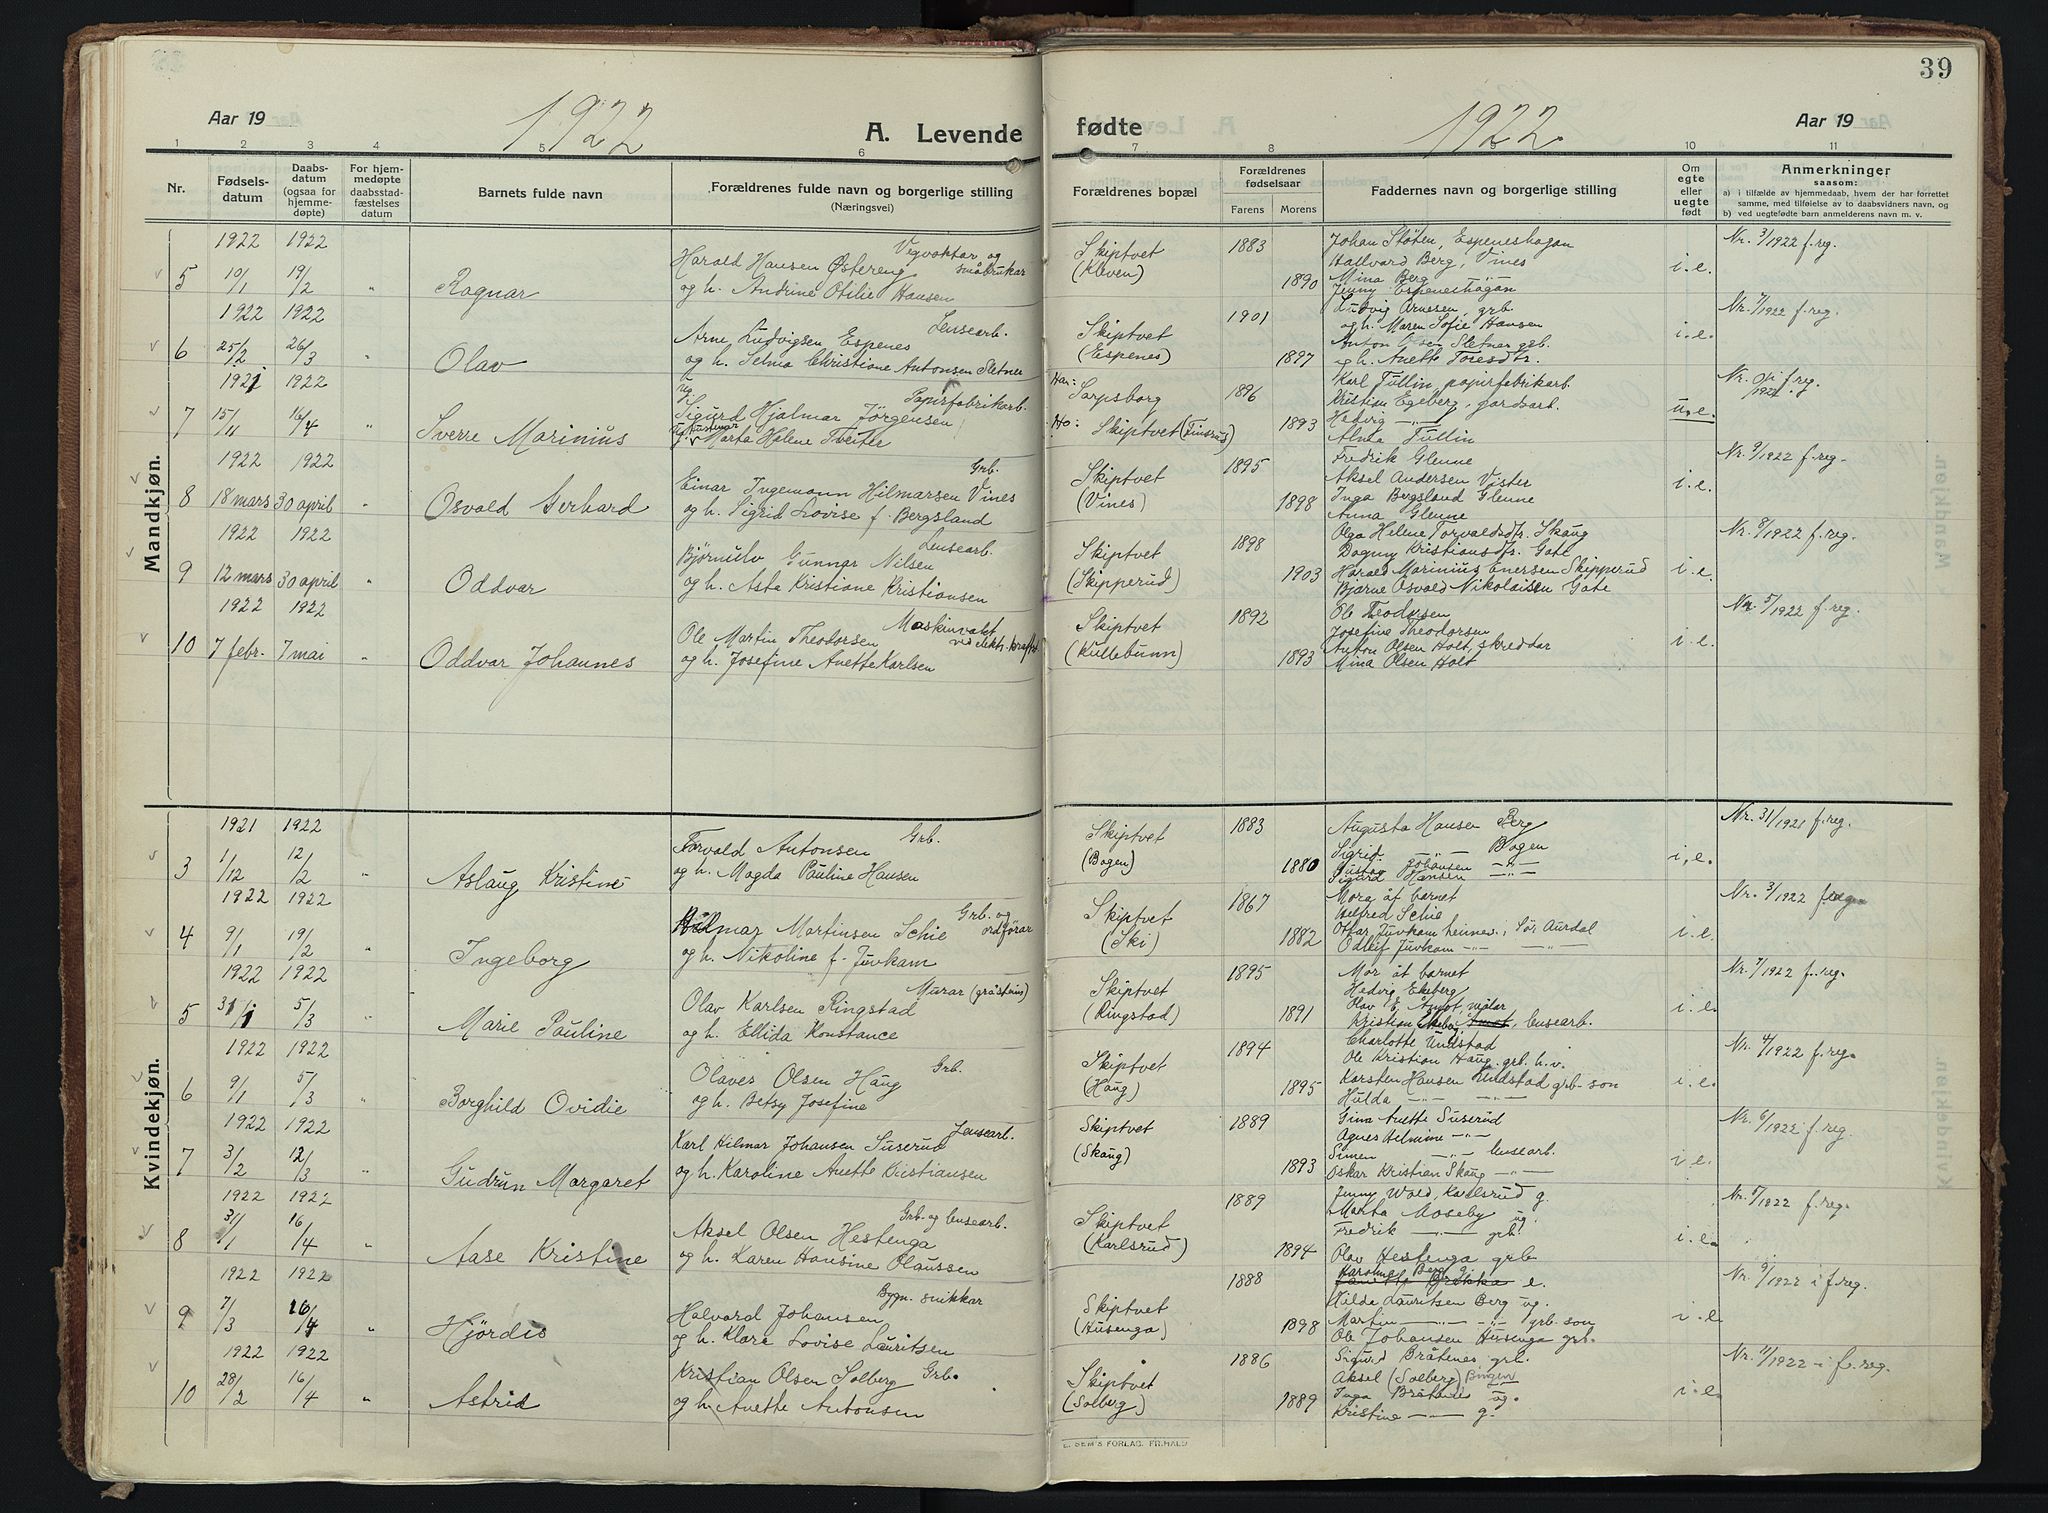 39
Aar 19
1922
A. Levende
fødte
1922.
Aar 19
1 2 3 4 5 6 7 8 9 10 11
Nr.
Fødsels-
datum
Daabs-
datum
(ogsaa for
hjemme-
døpte)
For hjem-
medøpte
daabsstad-
fæstelses
datum
Barnets fulde navn
Forældrenes fulde navn og borgerlige stilling
(Næringsvei)
Forældrenes bopæl
Forældrenes
fødselsaar
Farens
Morens
Faddernes navn og borgerlige stilling
Om
egte
eller
uegte
født
Anmerkninger
saasom:
a) i tilfælde av hjemmedaab, hvem der har forrettet
samme, med tilføielse av to daabsvidners navn, og
b) ved uegtefødte barn anmelderens navn m. v.
Mandkjøn.
1922 1922 Vegvoktar og
Harald Hansen Østereng småbrukar Skiptvet 1883 Johan Støten, Espeneshagan Nr. 3/1922 f. reg.
5 10/1 19/2 " Ragnar (Kleven) Hallvard Berg, Vines i.e.
og h. Andrine Otilie Hansen 1890 Mina Berg
Jenny Espeneshagan
1922 1922 Lensearb. 1901 Ludvig Arnesen, grb. Nr. 7/1922 f. reg.
Arne Ludvigsen Espenes Skiptvet og h. Maren Sofie Hansen
6 25/2 26/3 " Olav (Espenes) Anton Olsen Sletner grb. i.e.
og h. Selma Christiane Antonsen Sletner 1897 og h. Anette Toresdtr.
1921 1922 Ug. Papirfabrikarb. Han: Sarpsborg 1896 Karl Tullin papirfabrikarb. Nr. /1921 f. reg.
Sigurd Hjalmar Jörgensen Kristian Egeberg, gardsarb.
7 15/11 16/4 " Sverre Marinius Marta Helene Tveiter Ho: Skiptvet 1893 Hedvig -"- u.e.
Alma Tullin
1922 1922 Grb. Skiptvet 1895 Fredrik Glenne Nr. 9/1922 f. reg.
Einar Ingemann Hilmarsen Vines Aksel Andersen Vister
8 18 mars 30 april " Osvald Gerhard (Vines) Inga Bergsland Glenne i.e.
og h. Sigrid Lovise f. Bergsland 1898 Anna Glenne
1922 1922 Lensearb. 1898 Olga Helene Torvaldsdtr. Skaug Nr. 8/1922 f. reg.
Bjørnulv Gunnar Nilsen Skiptvet Dagny Kristiansdtr. Gate
9 12 mars 30 april " Oddvar (Skipperud) 1903 Harald Marinius Enersen Skipperud i.e.
og h. Asta Kristiane Kristiansen Bjarne Osvald Nikolaisen Gate
1922 1922 Maskinvakt Skiptvet 1892 Ole Teodorsen Nr. 5/1922 f. reg.
Ole Martin Theodorsen ved elektr. kraftst. Josefine Theodorsen
10 7 febr. 7 mai " Oddvar Johannes (Kullebunn) Anton Olsen Holt, skreddar i.e.
og h. Josefine Anette Karlsen 1893 Mina Olsen Holt
Kvindekjøn.
1921 1922 Grb. Skiptvet 1883 Augusta Hansen Berg Nr. 31/1921 f. reg.
Torvald Antonsen Sigrid -"- Bogen
3 1/12 12/2 " Aslaug Kristine (Bogen) 1880 Gustav Johansen -"- i.e.
og h. Magda Pauline Hansen Sigurd Hansen -"-
1922 1922 Grb. og ordförar 1867 Mora åt barnet Nr. 3/1922 f. reg.
Hilmar Martinsen Schie Skiptvet Helfred Schie
4 9/1 19/2 " Ingeborg (Ski) 1882 Ottar Juvkam hennes i Sør Aurdal i.e.
og h. Nikoline f. Juvkam Odleif Juvkam -"- -"-
1922 1922 Murar (gråstein) 1895 Mor åt barnet Nr. 7/1922 f. reg.
Olav Karlsen Ringstad Skiptvet Hedvig Ekeberg
5 31/1 5/3 " Marie Pauline (Ringstad) 1891 Olav E. Åmot, målar i.e.
og h. Ellida Konstance Kristian Ekeberg, lensearb.
1922 1922 Grb. 1894 Charlotte Undstad Nr. 4/1922 f. reg.
Olaves Olsen Haug Skiptvet Ole Kristian Haug grb. h.v.
6 9/1 5/3 " Borghild Ovidie (Haug) 1895 Karsten Hansen Lundstad grb. son i.e.
og h. Betsy Josefine Hulda -"- -"-
1922 1922 Lensearb. Skiptvet 1889 Gina Anette Suserud Nr. 6/1922 f. reg.
Karl Hilmar Johansen Suserud Agnes Helmine -"-
7 3/2 12/3 " Gudrun Margaret (Skaug) 1893 Simen -"- lensearb. i.e.
og h. Karoline Anette Kristiansen Oskar Kristian Skaug -"-
1922 1922 Grb. og lensearb. 1889 Jenny Wold, Karlsrud g. Nr. 5/1922 f. reg.
Aksel Olsen Hestenga Skiptvet Marta Moseby ug.
8 31/1 16/4 " Aase Kristine (Karlsrud) Fredrik -"- grb. i.e.
og h. Karen Hansine Olaussen 1894 Olav Hestenga grb.
1922 1922 Bygn. snikkar 1888 Karoline Berg g. Nr. 9/1922 i f. reg.
Halvard Johansen Skiptvet Hilda Lauritsen Berg ug.
9 7/3 16/4 " Hjördis (Husenga) 1898 Martin -"- -"- grb. son i.e.
og h. Klara Lovise Lauritsen Ole Johansen Husenga grb.
1922 1922 Grb. 1886 Sigurd Bråtenes grb. Nr. 11/1922 i f. reg.
Kristian Olsen Solberg Skiptvet Aksel (Solberg) Bingen
10 28/2 16/4 " Astrid (Solberg) 1889 Inga Bråtenes ug. i.e.
og h. Anette Antonsen Kristine -"- g.
E. SEM'S FORLAG. FR.HALD